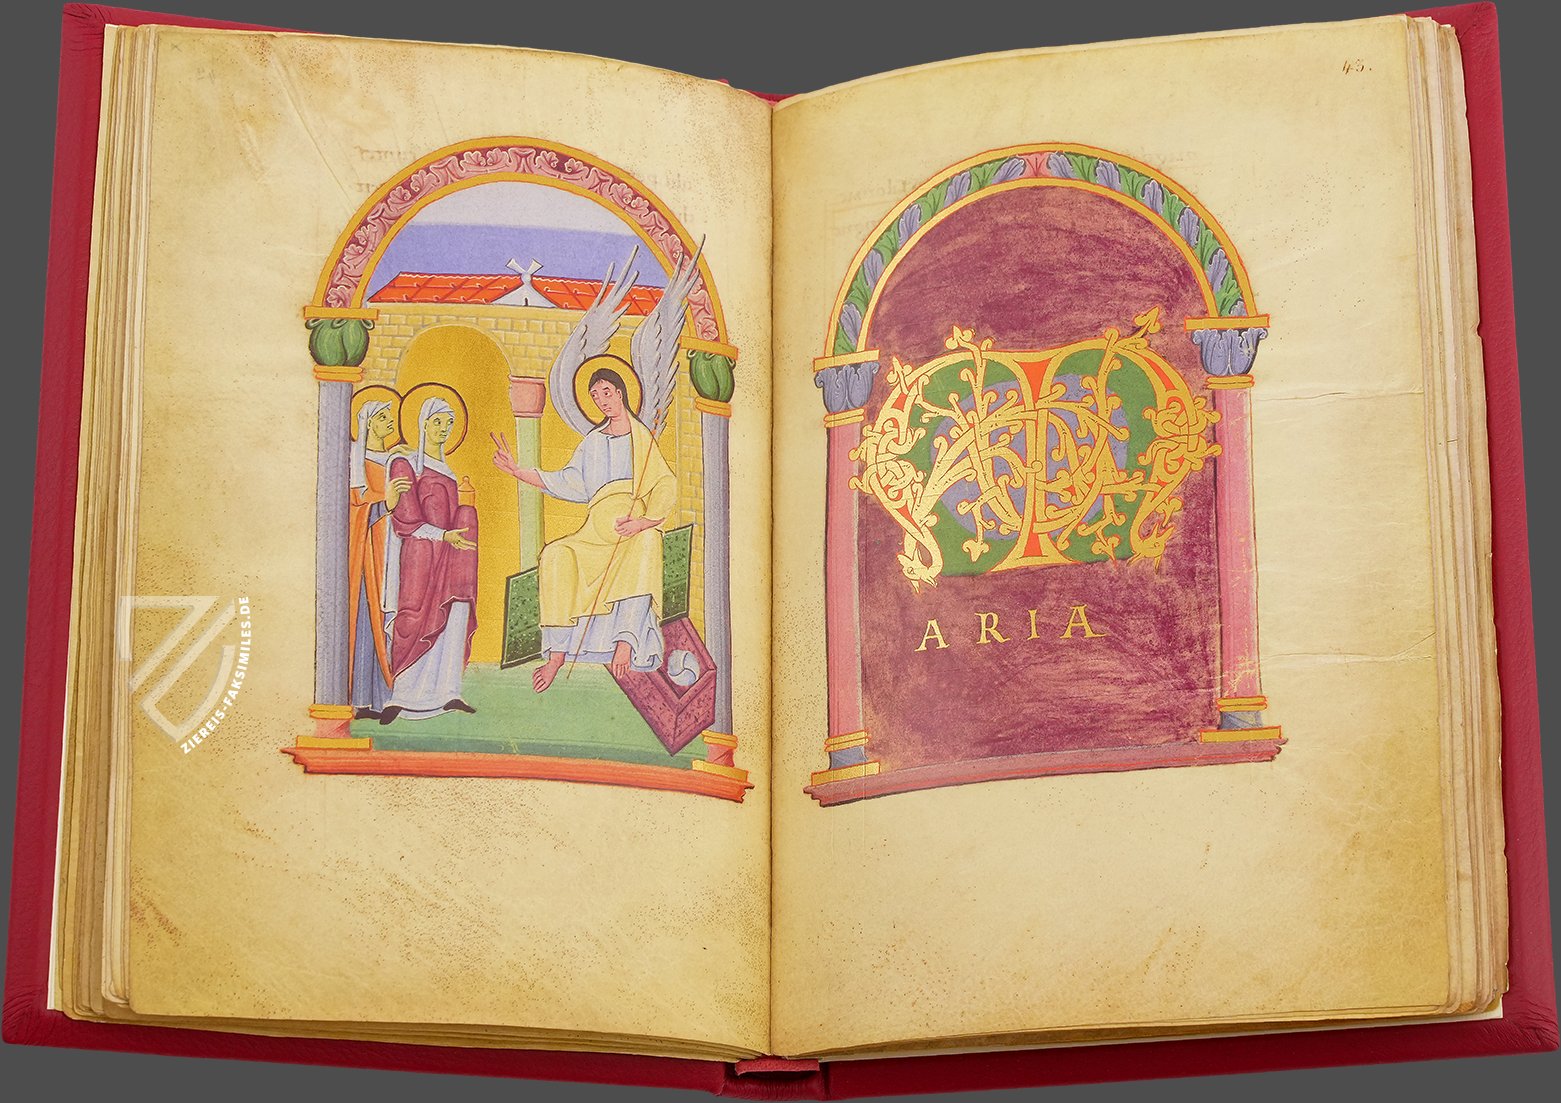 43.
M
ARIA
ZIEREIS-FAKSIMILES.DE